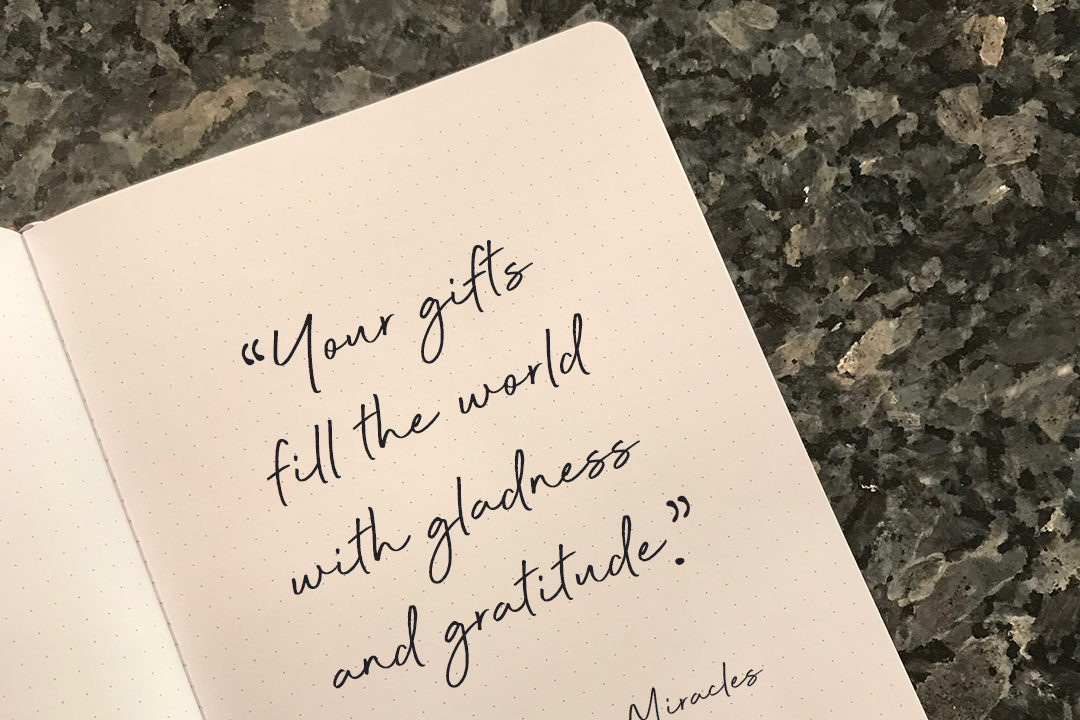 “Your gifts
fill the world
with gladness
and gratitude.”
Miracles